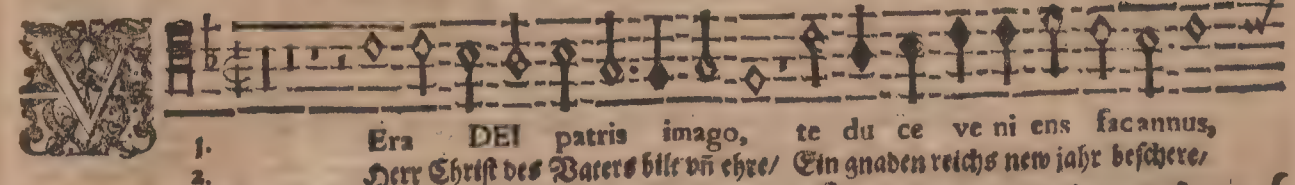 V
1. Era DEI patris imago, te du ce ve ni ens facannus,
2. Herr Christ des Vaters bilt vñ ehre/ Ein gnaden reichs new jahr beschere/